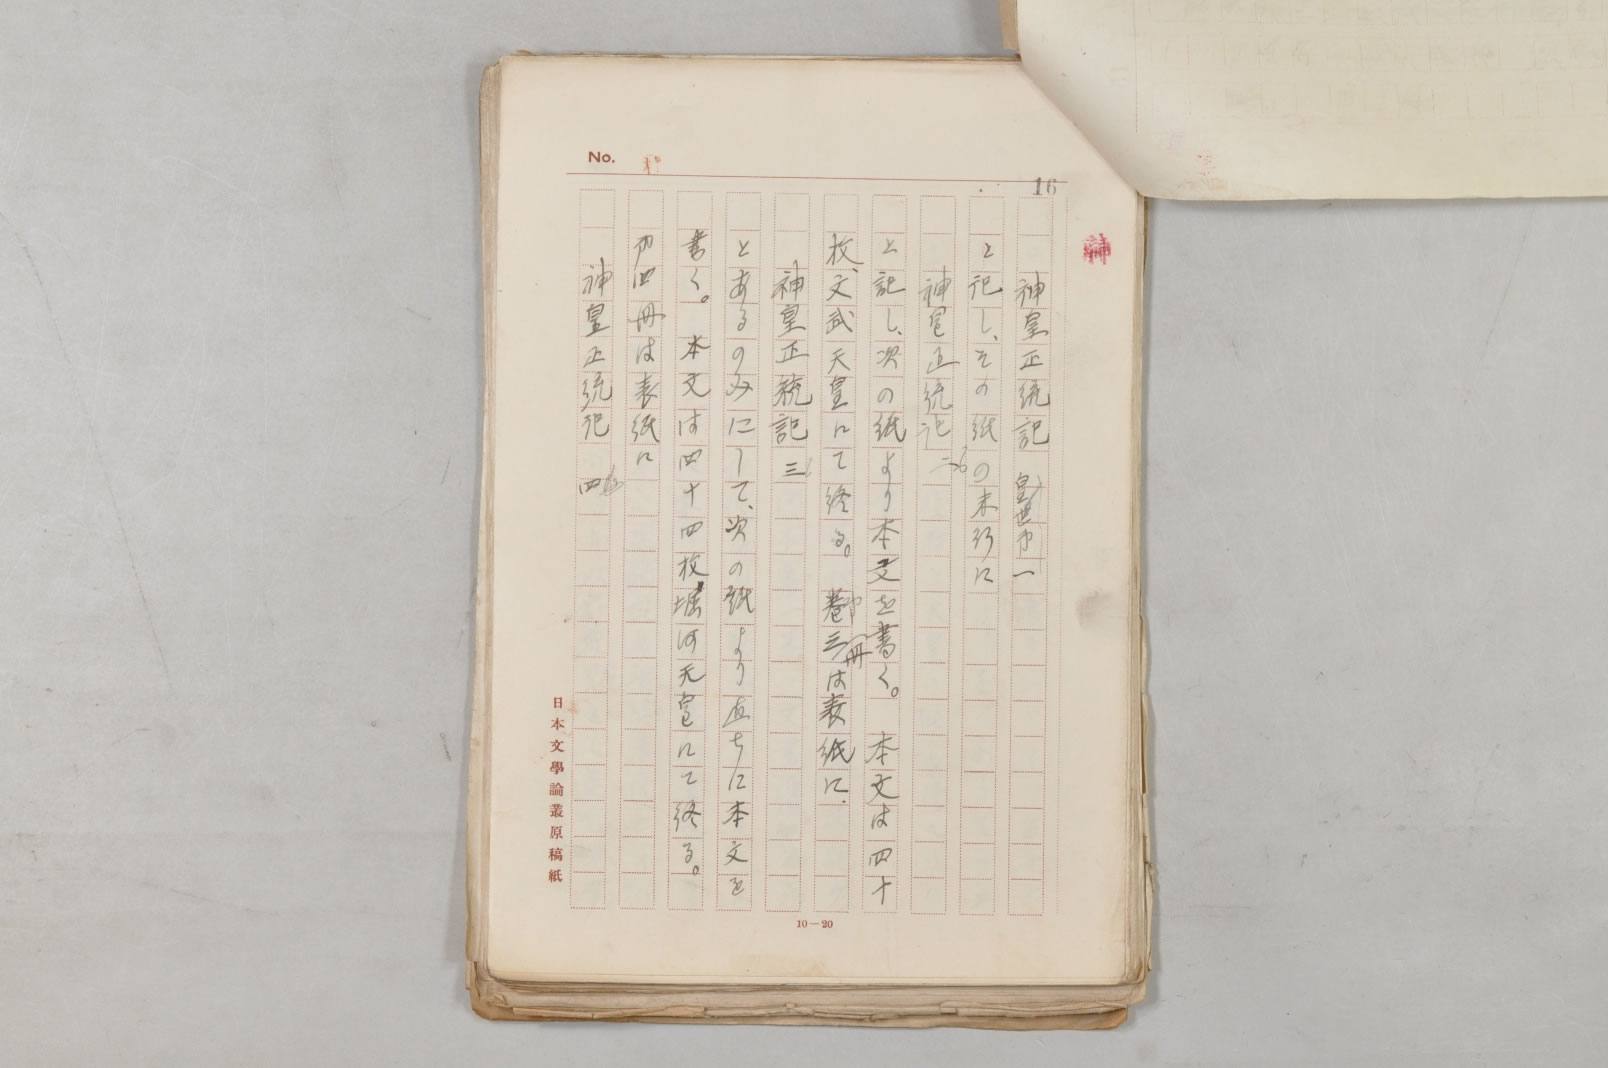 No.
16
神皇正統記 皇世第一
と記し、その紙の末行に
神皇正統記 二
と記し、次の紙より本文を書く。本文は四十
枚、文武天皇にて終る。第三冊は表紙に、
神皇正統記 三
とあるのみにして、次の紙より直ちに本文を
書く。本文は四十四枚、堀河天皇にて終る。
第四冊は表紙に
神皇正統記 四
日本文學論叢原稿紙
10—20